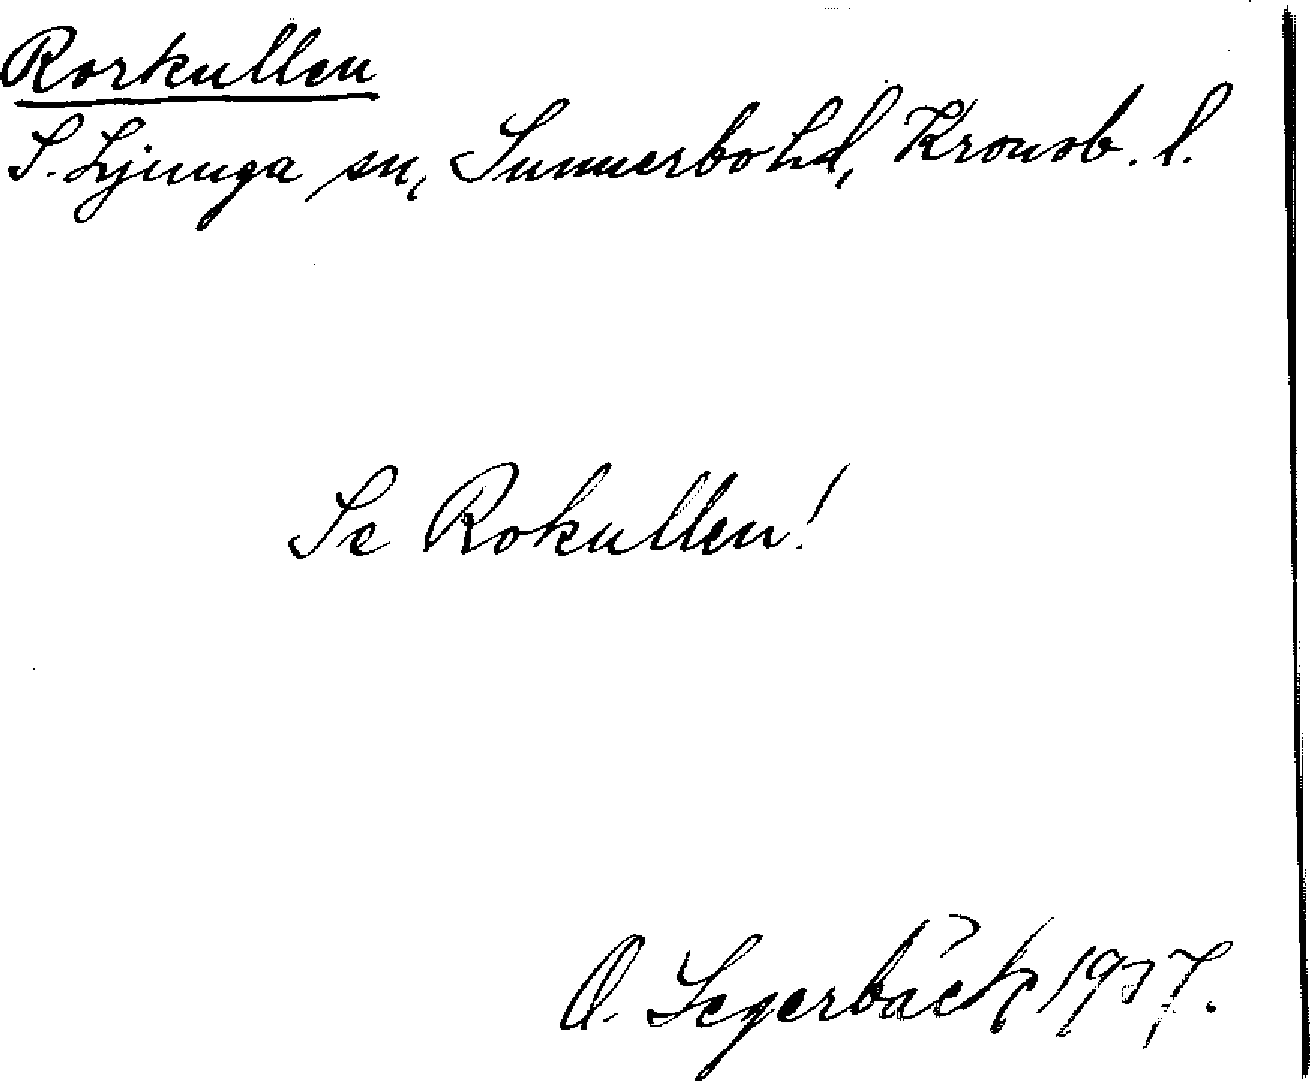 Rorkullen
S. Ljunga sn, Sunnerbo hd, Kronob. l.
Se Rokullen!
O. Segerbäck 1937.